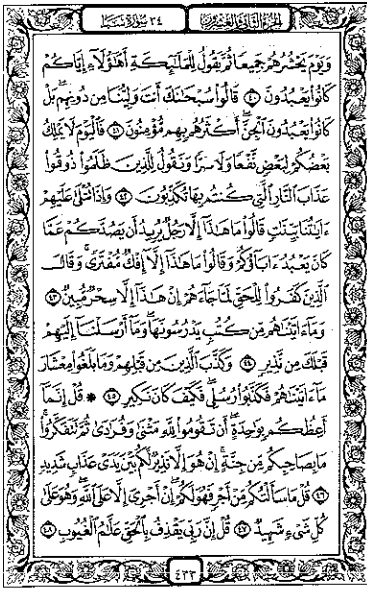 الجزء الثاني والعشرون ٣٤ سورة سبإ
وَيَوْمَ يَحْشُرُهُمْ جَمِيعًا ثُمَّ يَقُولُ لِلْمَلَٰٓئِكَةِ أَهَٰٓؤُلَآءِ إِيَّاكُمْ
كَانُوا۟ يَعْبُدُونَ ٤٠ قَالُوا۟ سُبْحَٰنَكَ أَنتَ وَلِيُّنَا مِن دُونِهِم بَلْ
كَانُوا۟ يَعْبُدُونَ ٱلْجِنَّ أَكْثَرُهُم بِهِم مُّؤْمِنُونَ ٤١ فَٱلْيَوْمَ لَا يَمْلِكُ
بَعْضُكُمْ لِبَعْضٍ نَّفْعًا وَلَا ضَرًّا وَنَقُولُ لِلَّذِينَ ظَلَمُوا۟ ذُوقُوا۟
عَذَابَ ٱلنَّارِ ٱلَّتِى كُنتُم بِهَا تُكَذِّبُونَ ٤٢ وَإِذَا تُتْلَىٰ عَلَيْهِمْ
ءَايَٰتُنَا بَيِّنَٰتٍ قَالُوا۟ مَا هَٰذَآ إِلَّا رَجُلٌ يُرِيدُ أَن يَصُدَّكُمْ عَمَّا
كَانَ يَعْبُدُ ءَابَآؤُكُمْ وَقَالُوا۟ مَا هَٰذَآ إِلَّآ إِفْكٌ مُّفْتَرًى وَقَالَ
ٱلَّذِينَ كَفَرُوا۟ لِلْحَقِّ لَمَّا جَآءَهُمْ إِنْ هَٰذَآ إِلَّا سِحْرٌ مُّبِينٌ ٤٣
وَمَآ ءَاتَيْنَٰهُم مِّن كُتُبٍ يَدْرُسُونَهَا وَمَآ أَرْسَلْنَآ إِلَيْهِمْ
قَبْلَكَ مِن نَّذِيرٍ ٤٤ وَكَذَّبَ ٱلَّذِينَ مِن قَبْلِهِمْ وَمَا بَلَغُوا۟ مِعْشَارَ
مَآ ءَاتَيْنَٰهُمْ فَكَذَّبُوا۟ رُسُلِى فَكَيْفَ كَانَ نَكِيرِ ٤٥ * قُلْ إِنَّمَآ
أَعِظُكُم بِوَٰحِدَةٍ أَن تَقُومُوا۟ لِلَّهِ مَثْنَىٰ وَفُرَٰدَىٰ ثُمَّ تَتَفَكَّرُوا۟
مَا بِصَاحِبِكُم مِّن جِنَّةٍ إِنْ هُوَ إِلَّا نَذِيرٌ لَّكُم بَيْنَ يَدَىْ عَذَابٍ شَدِيدٍ
٤٦ قُلْ مَا سَأَلْتُكُم مِّنْ أَجْرٍ فَهُوَ لَكُمْ إِنْ أَجْرِىَ إِلَّا عَلَى ٱللَّهِ وَهُوَ عَلَىٰ
كُلِّ شَىْءٍ شَهِيدٌ ٤٧ قُلْ إِنَّ رَبِّى يَقْذِفُ بِٱلْحَقِّ عَلَّٰمُ ٱلْغُيُوبِ ٤٨
٤٣٣